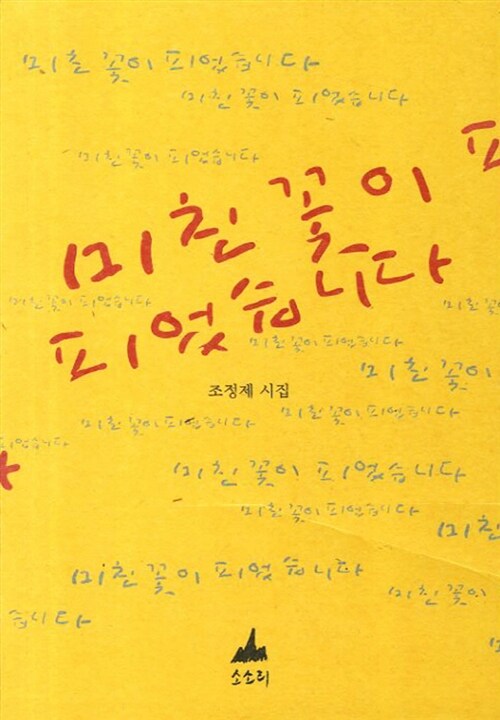 미친 꽃이 피었습니다
미친 꽃이 피었습니다
미친 꽃이 피었습니다
미친 꽃이 피
피었습니다
미친 꽃이 피었습니다
미친 꽃
미친 꽃이 피었습니다
미친 꽃이
조정제 시집
미친 꽃이 피었습니다
미친 꽃이 피었습니다
피었습니다
미친 꽃이 피었습니다
미친 꽃이 피었습니다
미친
미친 꽃이 피었습니다
미친 꽃이
습니다
소소리